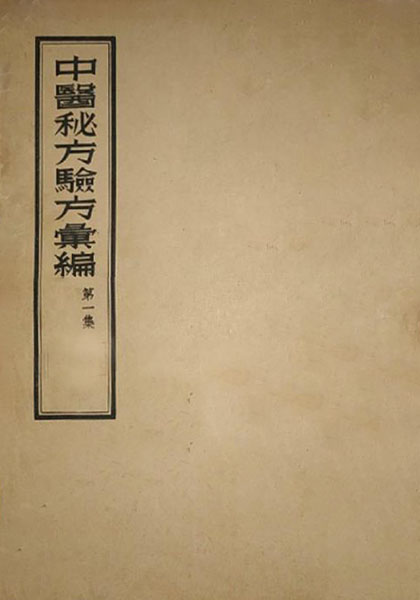 中醫秘方驗方彙編
第一集